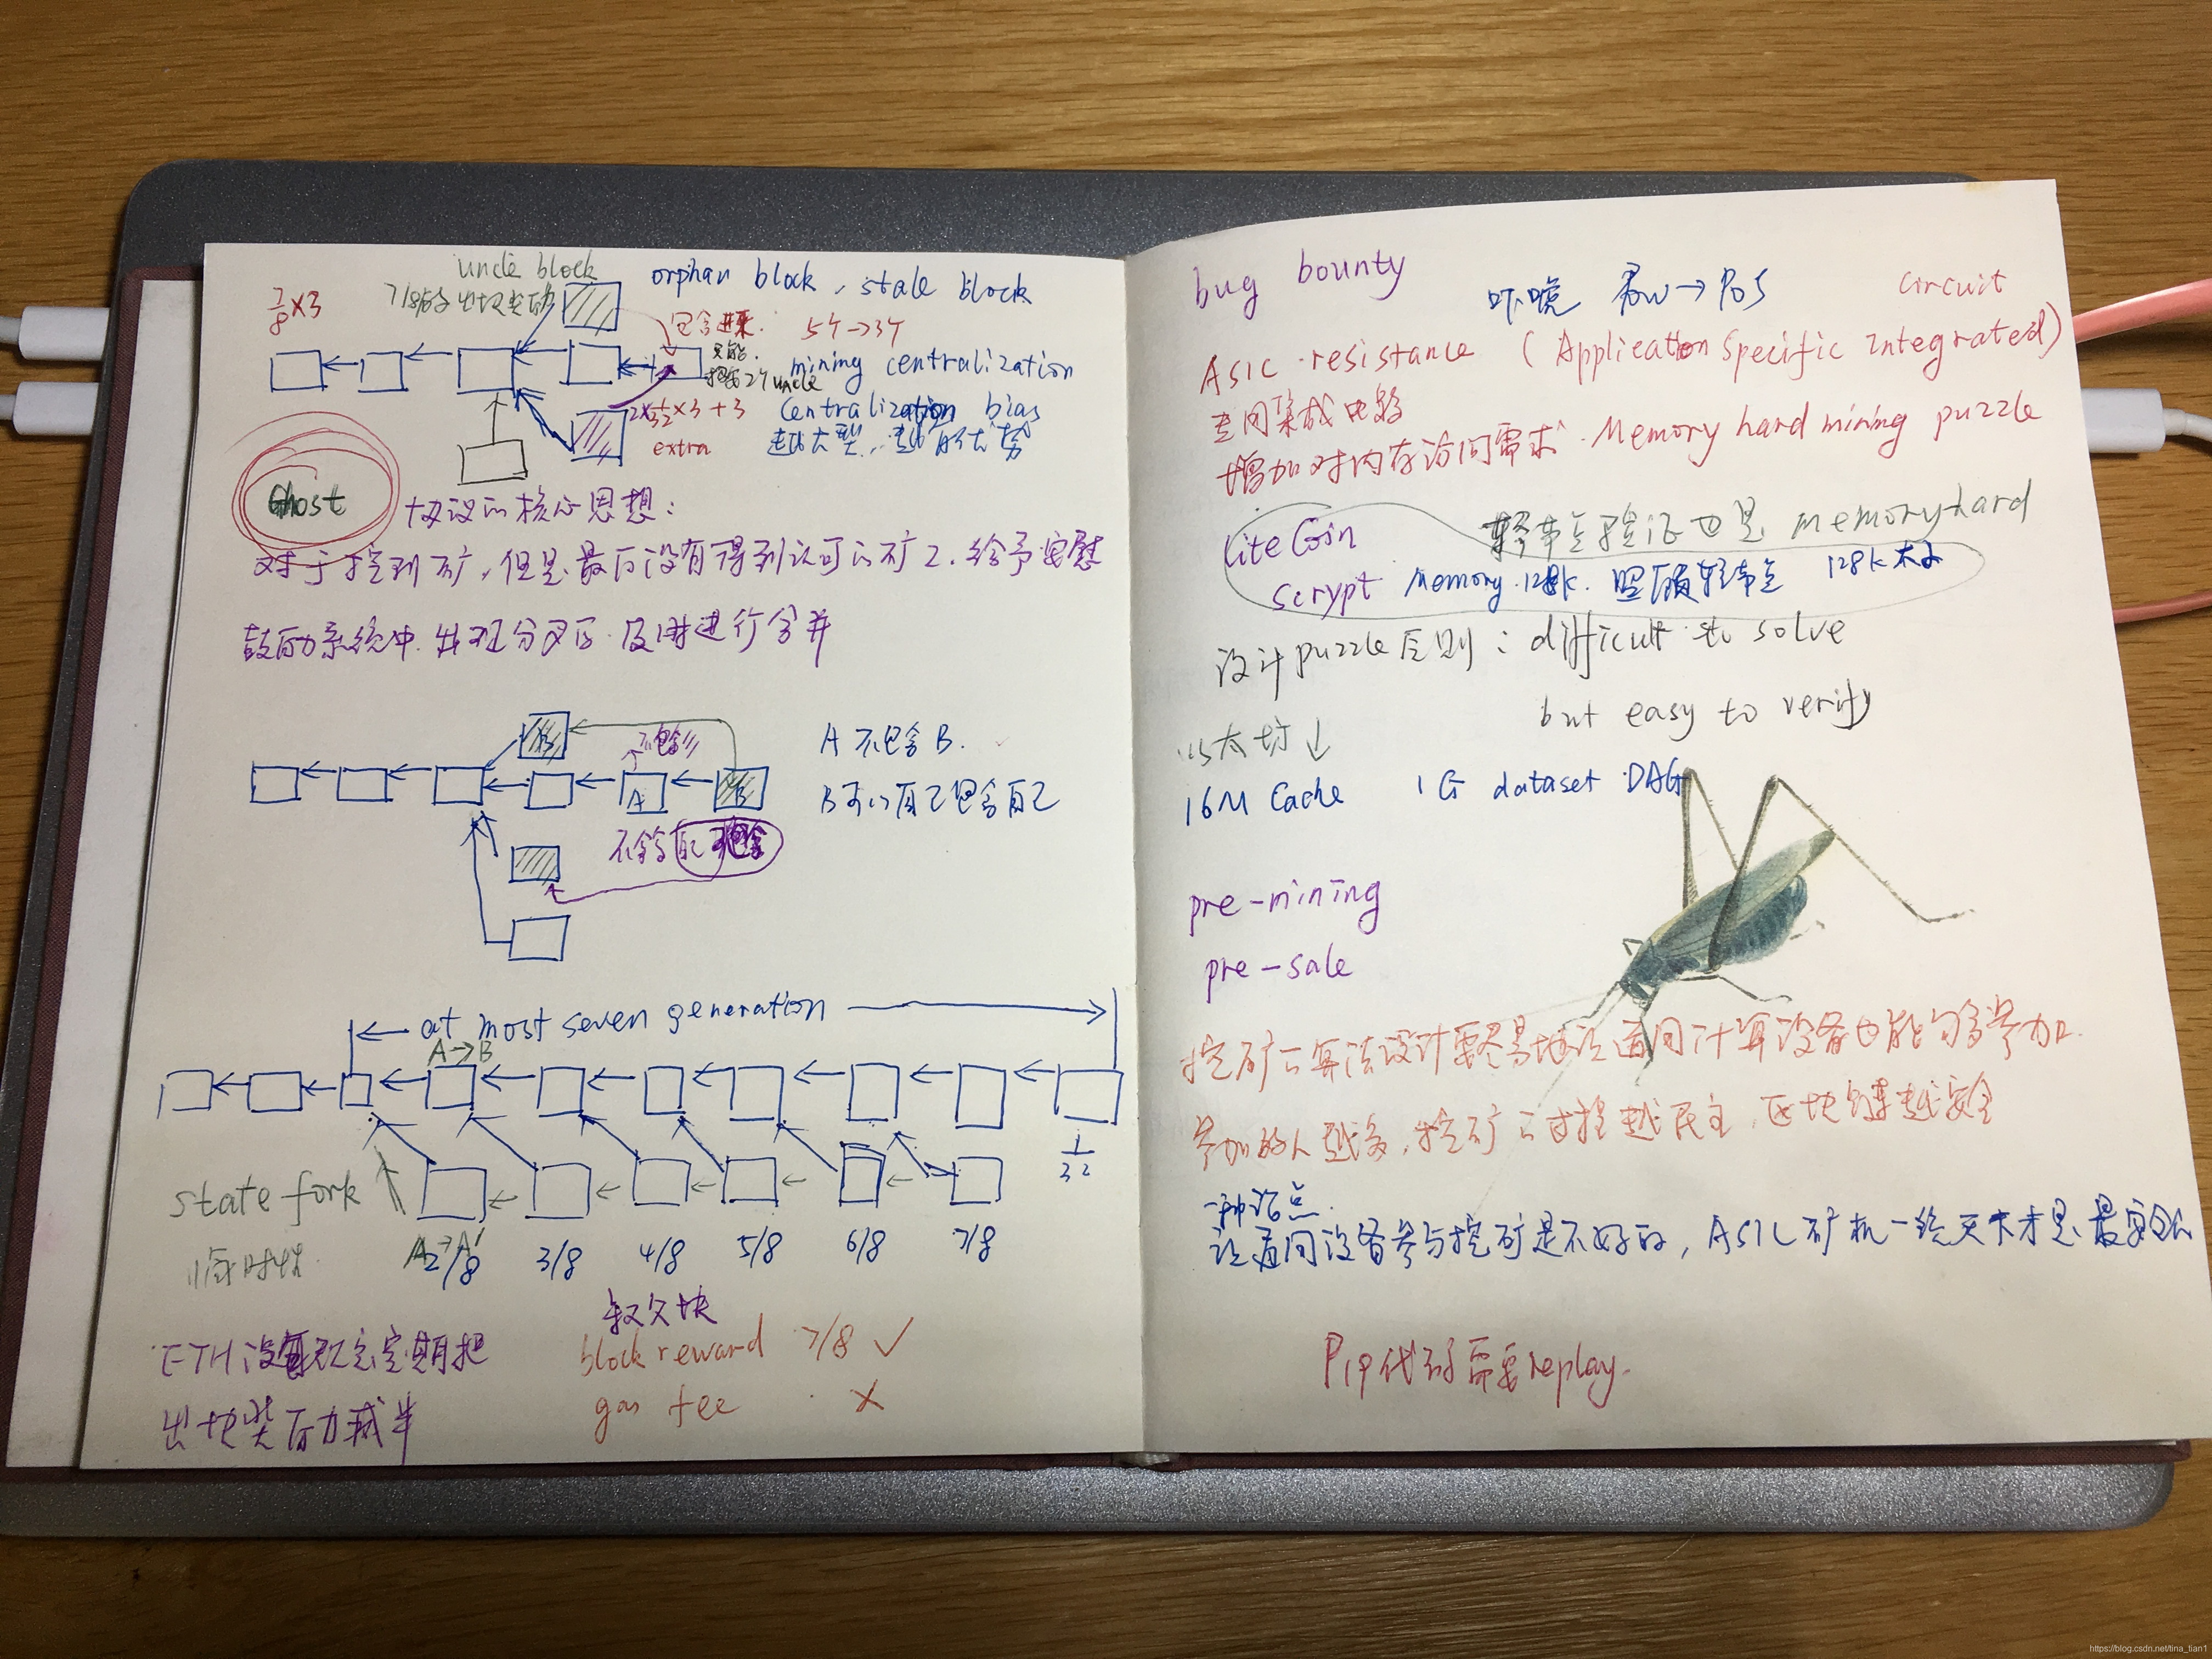 uncle block
7/8 × 3
7/8的出块奖励
orphan block, stale block
包含进来.
5个→3个
只能.
包含2个uncle
mining centralization
2×1/32×3+3
extra
centralization bias
越大型..越有优势
Ghost
协议的核心思想:
对于挖到矿,但是最后没有得到认可的矿工.给予安慰
鼓励系统中.出现分叉后.及时进行合并
不包含
A 不包含 B.
A
B
B可以自己包含自己
不等自己
at most seven generation
A→B
1/32
state fork
A→A'
临时性
2/8 3/8 4/8 5/8 6/8 7/8
叔父块
ETH没有规定定期把
出块奖励减半
block reward 7/8 ✓
gas fee ×
bug bounty
吓唬 Pow→PoS
circuit
ASIC resistance (Application Specific Integrated)
专用集成电路
增加对内存访问需求. Memory hard mining puzzle
LiteCoin
轻节点验证也是 memory hard
scrypt Memory.128k. 照顾轻节点 128k太小
设计puzzle原则: difficult to solve
but easy to verify
以太坊↓
16M Cache 1G dataset DAG
pre-mining
pre-sale
挖矿的算法设计要尽量地让通用计算设备也能够参加.
参加的人越多,挖矿的过程越民主,区块链越安全
一种论点.
让通用设备参与挖矿是不好的, ASIC矿机一统天下才是最安全的
代码需要replay.
https://blog.csdn.net/tina_tian1